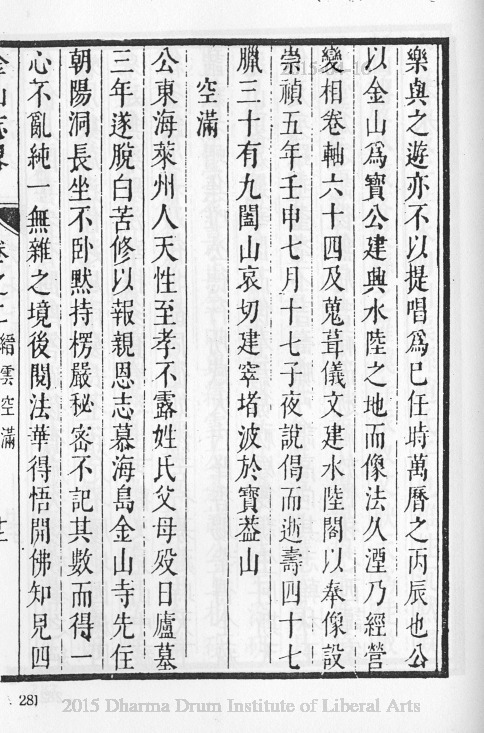 樂與之遊亦不以提唱爲已任時萬曆之丙辰也公
以金山爲寶公建興水陸之地而像法久湮乃經營
變相卷軸六十四及蒐葺儀文建水陸閣以奉像設
崇禎五年壬申七月十七子夜說偈而逝壽四十七
臘三十有九闔山哀切建窣堵波於寶葢山
空滿
公東海萊州人天性至孝不露姓氏父母殁日廬墓
三年遂脫白苦修以報親恩志慕海島金山寺先住
朝陽洞長坐不卧默持楞嚴秘密不記其數而得一
心不亂純一無雜之境後閱法華得悟開佛知見四
金山志畧
卷之二
縉雲空滿
281
2015 Dharma Drum Institute of Liberal Arts